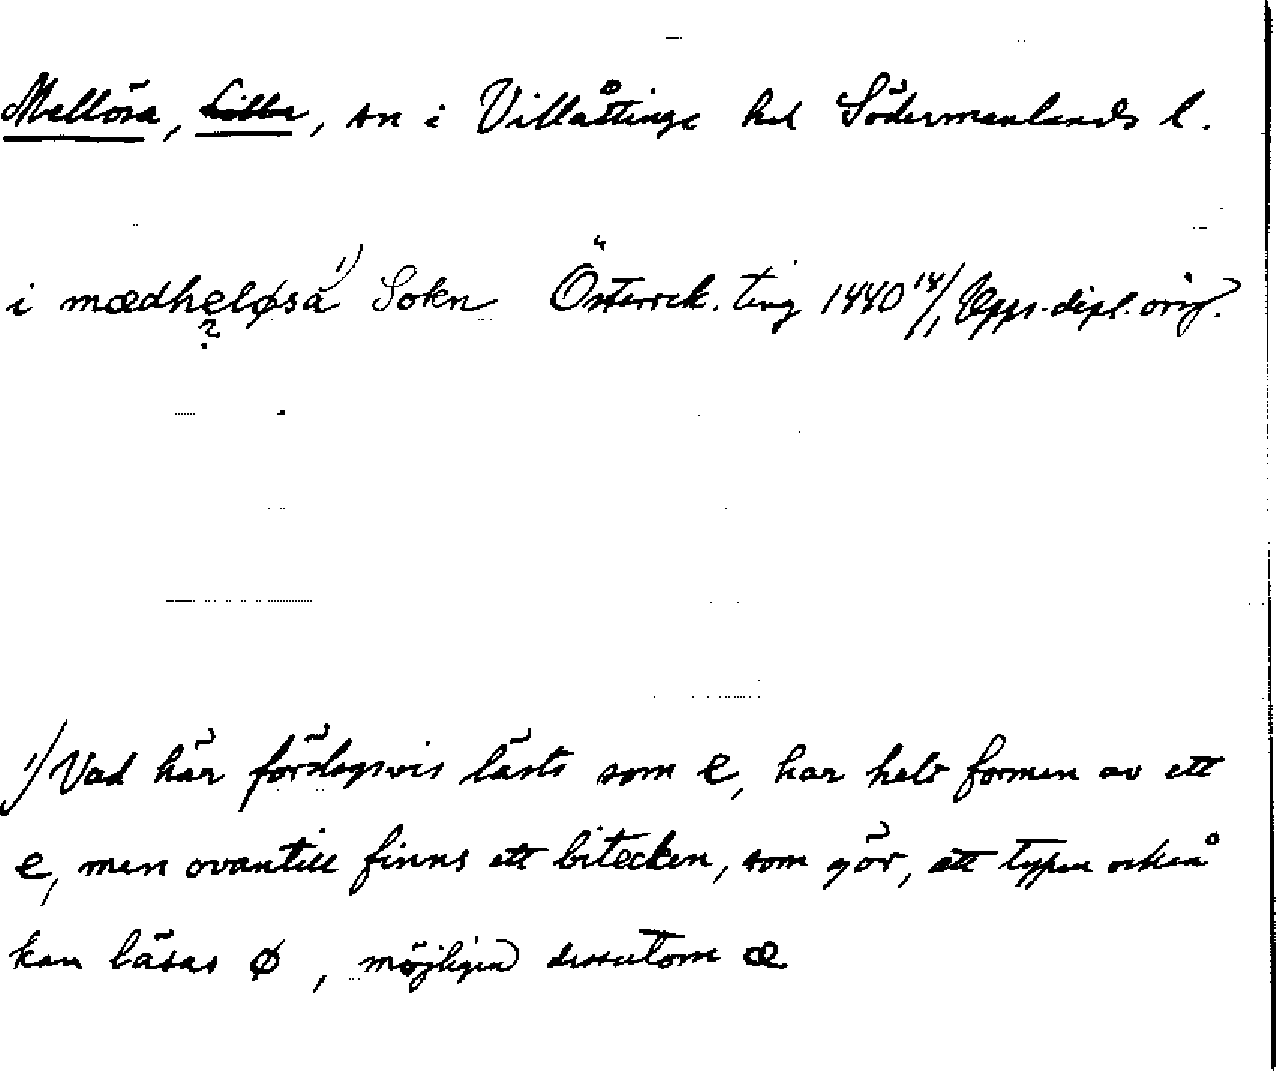 Mellösa, Lilla, sn i Villåttinge hd Södermanlands l.
i mædheløsa ¹⁾ Sokn Österrek. ting 1440 14/1 Upps. dipl. orig.
?
¹⁾ Vad här förslagsvis lästs som e, har helt formen av ett
e, men ovantill finns ett bitecken, som gör, att typen också
kan läsas ø, möjligen dessutom æ